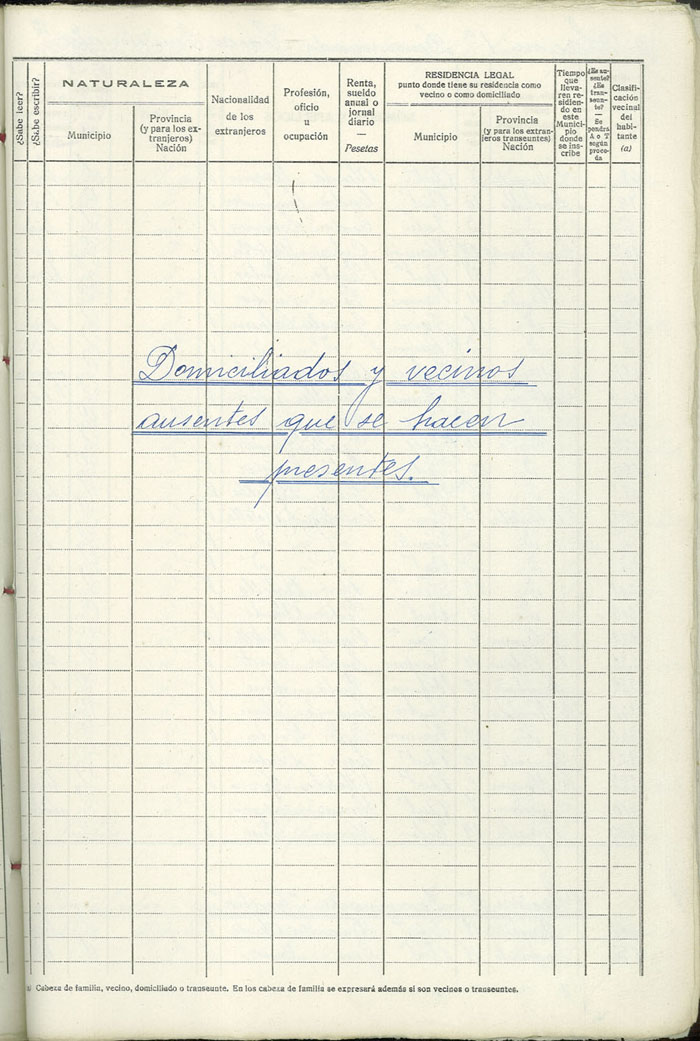 ¿Sabe leer?
¿Sabe escribir?
NATURALEZA
Municipio
Provincia
(y para los ex-
tranjeros)
Nación
Nacionalidad
de los
extranjeros
Profesión,
oficio
u
ocupación
Renta,
sueldo
anual o
jornal
diario
—
Pesetas
RESIDENCIA LEGAL
punto donde tiene su residencia como
vecino o como domiciliado
Municipio
Provincia
(y para los extran-
jeros transeuntes)
Nación
Tiempo
que
lleva-
ren re-
sidien-
do en
este
Munici-
pio
donde
se ins-
cribe
¿Es au-
sente?
¿Es
tran-
seun-
te?
—
Se
pondrá
A o T
según
proce-
da
Clasifi-
cación
vecinal
del
habi-
tante
(a)
Domiciliados y vecinos
ausentes que se hacen
presentes.
Cabeza de familia, vecino, domiciliado o transeunte. En los cabeza de familia se expresará además si son vecinos o transeuntes.